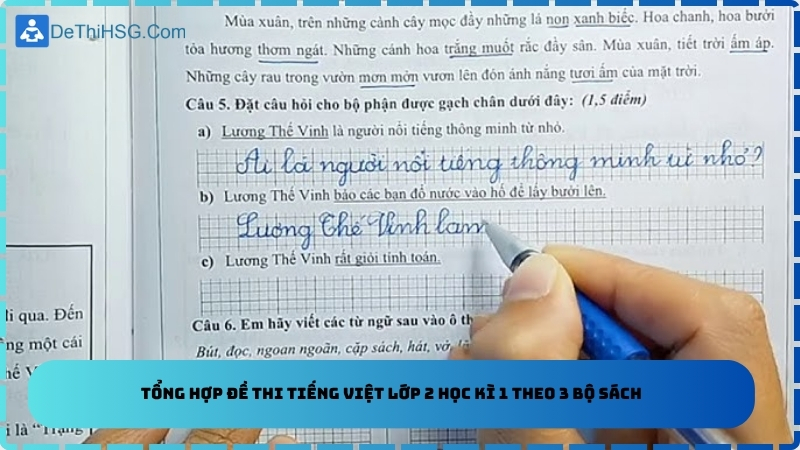 DeThiHSG.Com
Mùa xuân, trên những cành cây mọc đầy những lá non xanh biếc. Hoa chanh, hoa bưởi
tỏa hương thơm ngát. Những cánh hoa trắng muốt rắc đầy sân. Mùa xuân, tiết trời ấm áp.
Những cây rau trong vườn mơn mởn vươn lên đón ánh nắng tươi ấm của mặt trời.
Câu 5. Đặt câu hỏi cho bộ phận được gạch chân dưới đây: (1,5 điểm)
a) Lương Thế Vinh là người nổi tiếng thông minh từ nhỏ.
Ai là người nổi tiếng thông minh từ nhỏ?
b) Lương Thế Vinh bảo các bạn đổ nước vào hố để lấy bưởi lên.
Lương Thế Vinh làm
c) Lương Thế Vinh rất giỏi tính toán.
Câu 6. Em hãy viết các từ ngữ sau vào ô
Bút, đọc, ngoan ngoãn, cặp sách, hát, vở,
đi qua. Đến
một cái
là "Trạng
TỔNG HỢP ĐỀ THI TIẾNG VIỆT LỚP 2 HỌC KÌ 1 THEO 3 BỘ SÁCH